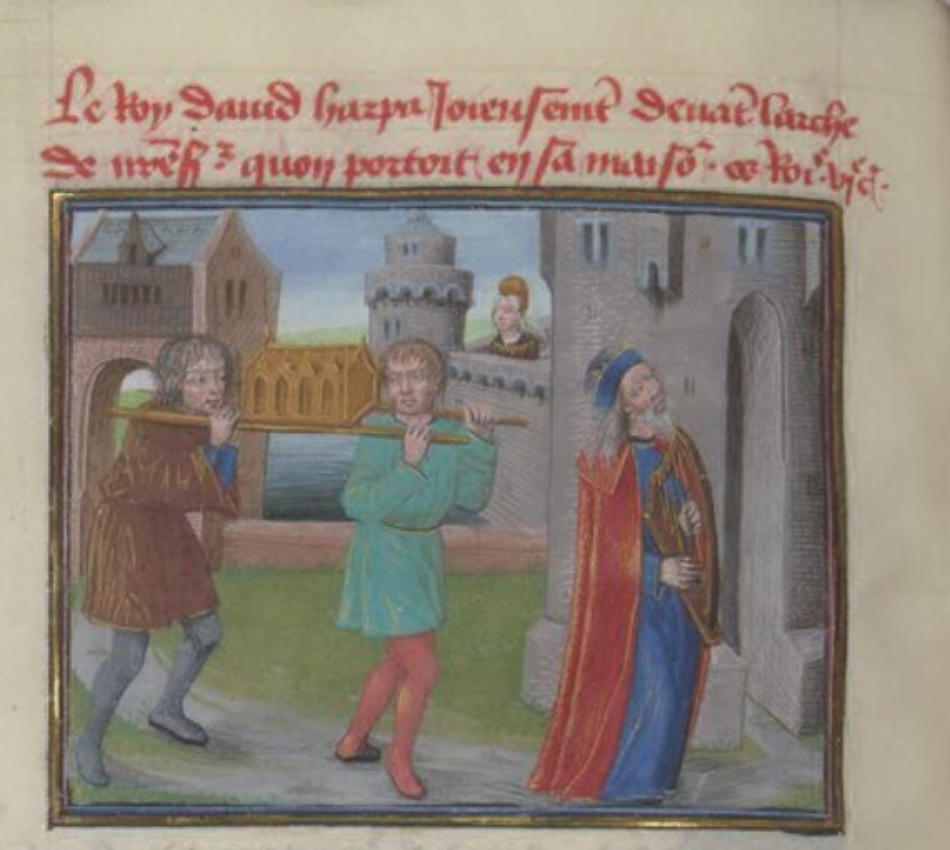 Le Roy dauid harpa Joieusemēt deuāt larche
de nr̄e sr̄ quon portoit en sa maisō. Roi. vi.